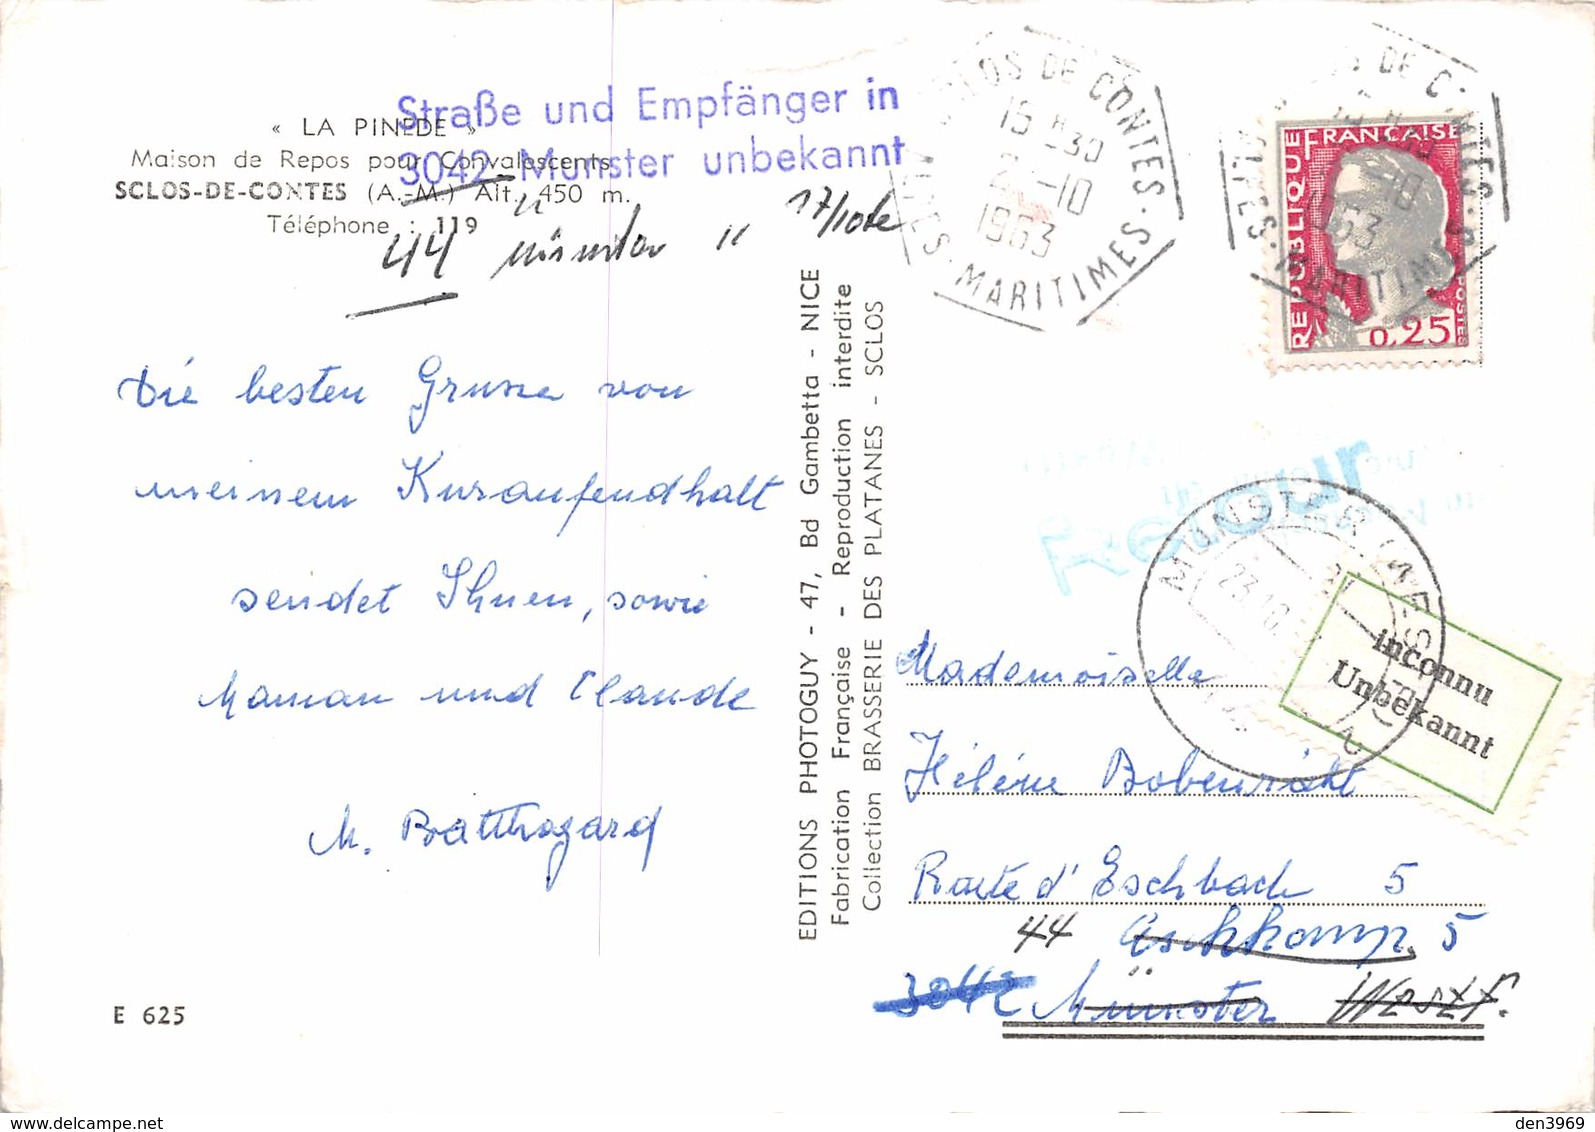 « LA PINEDE »
Maison de Repos pour Convalescents
SCLOS-DE-CONTES (A.-M.) Alt. 450 m.
Téléphone : 119
Straße und Empfänger in
3042 Munster unbekannt
44 Münster
Die besten Grusse von
meinem Kuraufendhalt
sendet Ihnen, sowie
Maman und Claude
M. Batthogard
E 625
EDITIONS PHOTOGUY - 47, Bd Gambetta - NICE
Fabrication Française - Reproduction interdite
Collection BRASSERIE DES PLATANES - SCLOS
SCLOS DE CONTES
15 H30
-10
1963
MARITIMES
REPUBLIQUE FRANÇAISE
POSTES
0,25
Retour
MUNSTER
23.10.
inconnu
Unbekannt
Mademoiselle
Hélène Bobenricht
Route d' Eschbach 5
44 Eschkamp, 5
3042 Münster Westf.
den3969